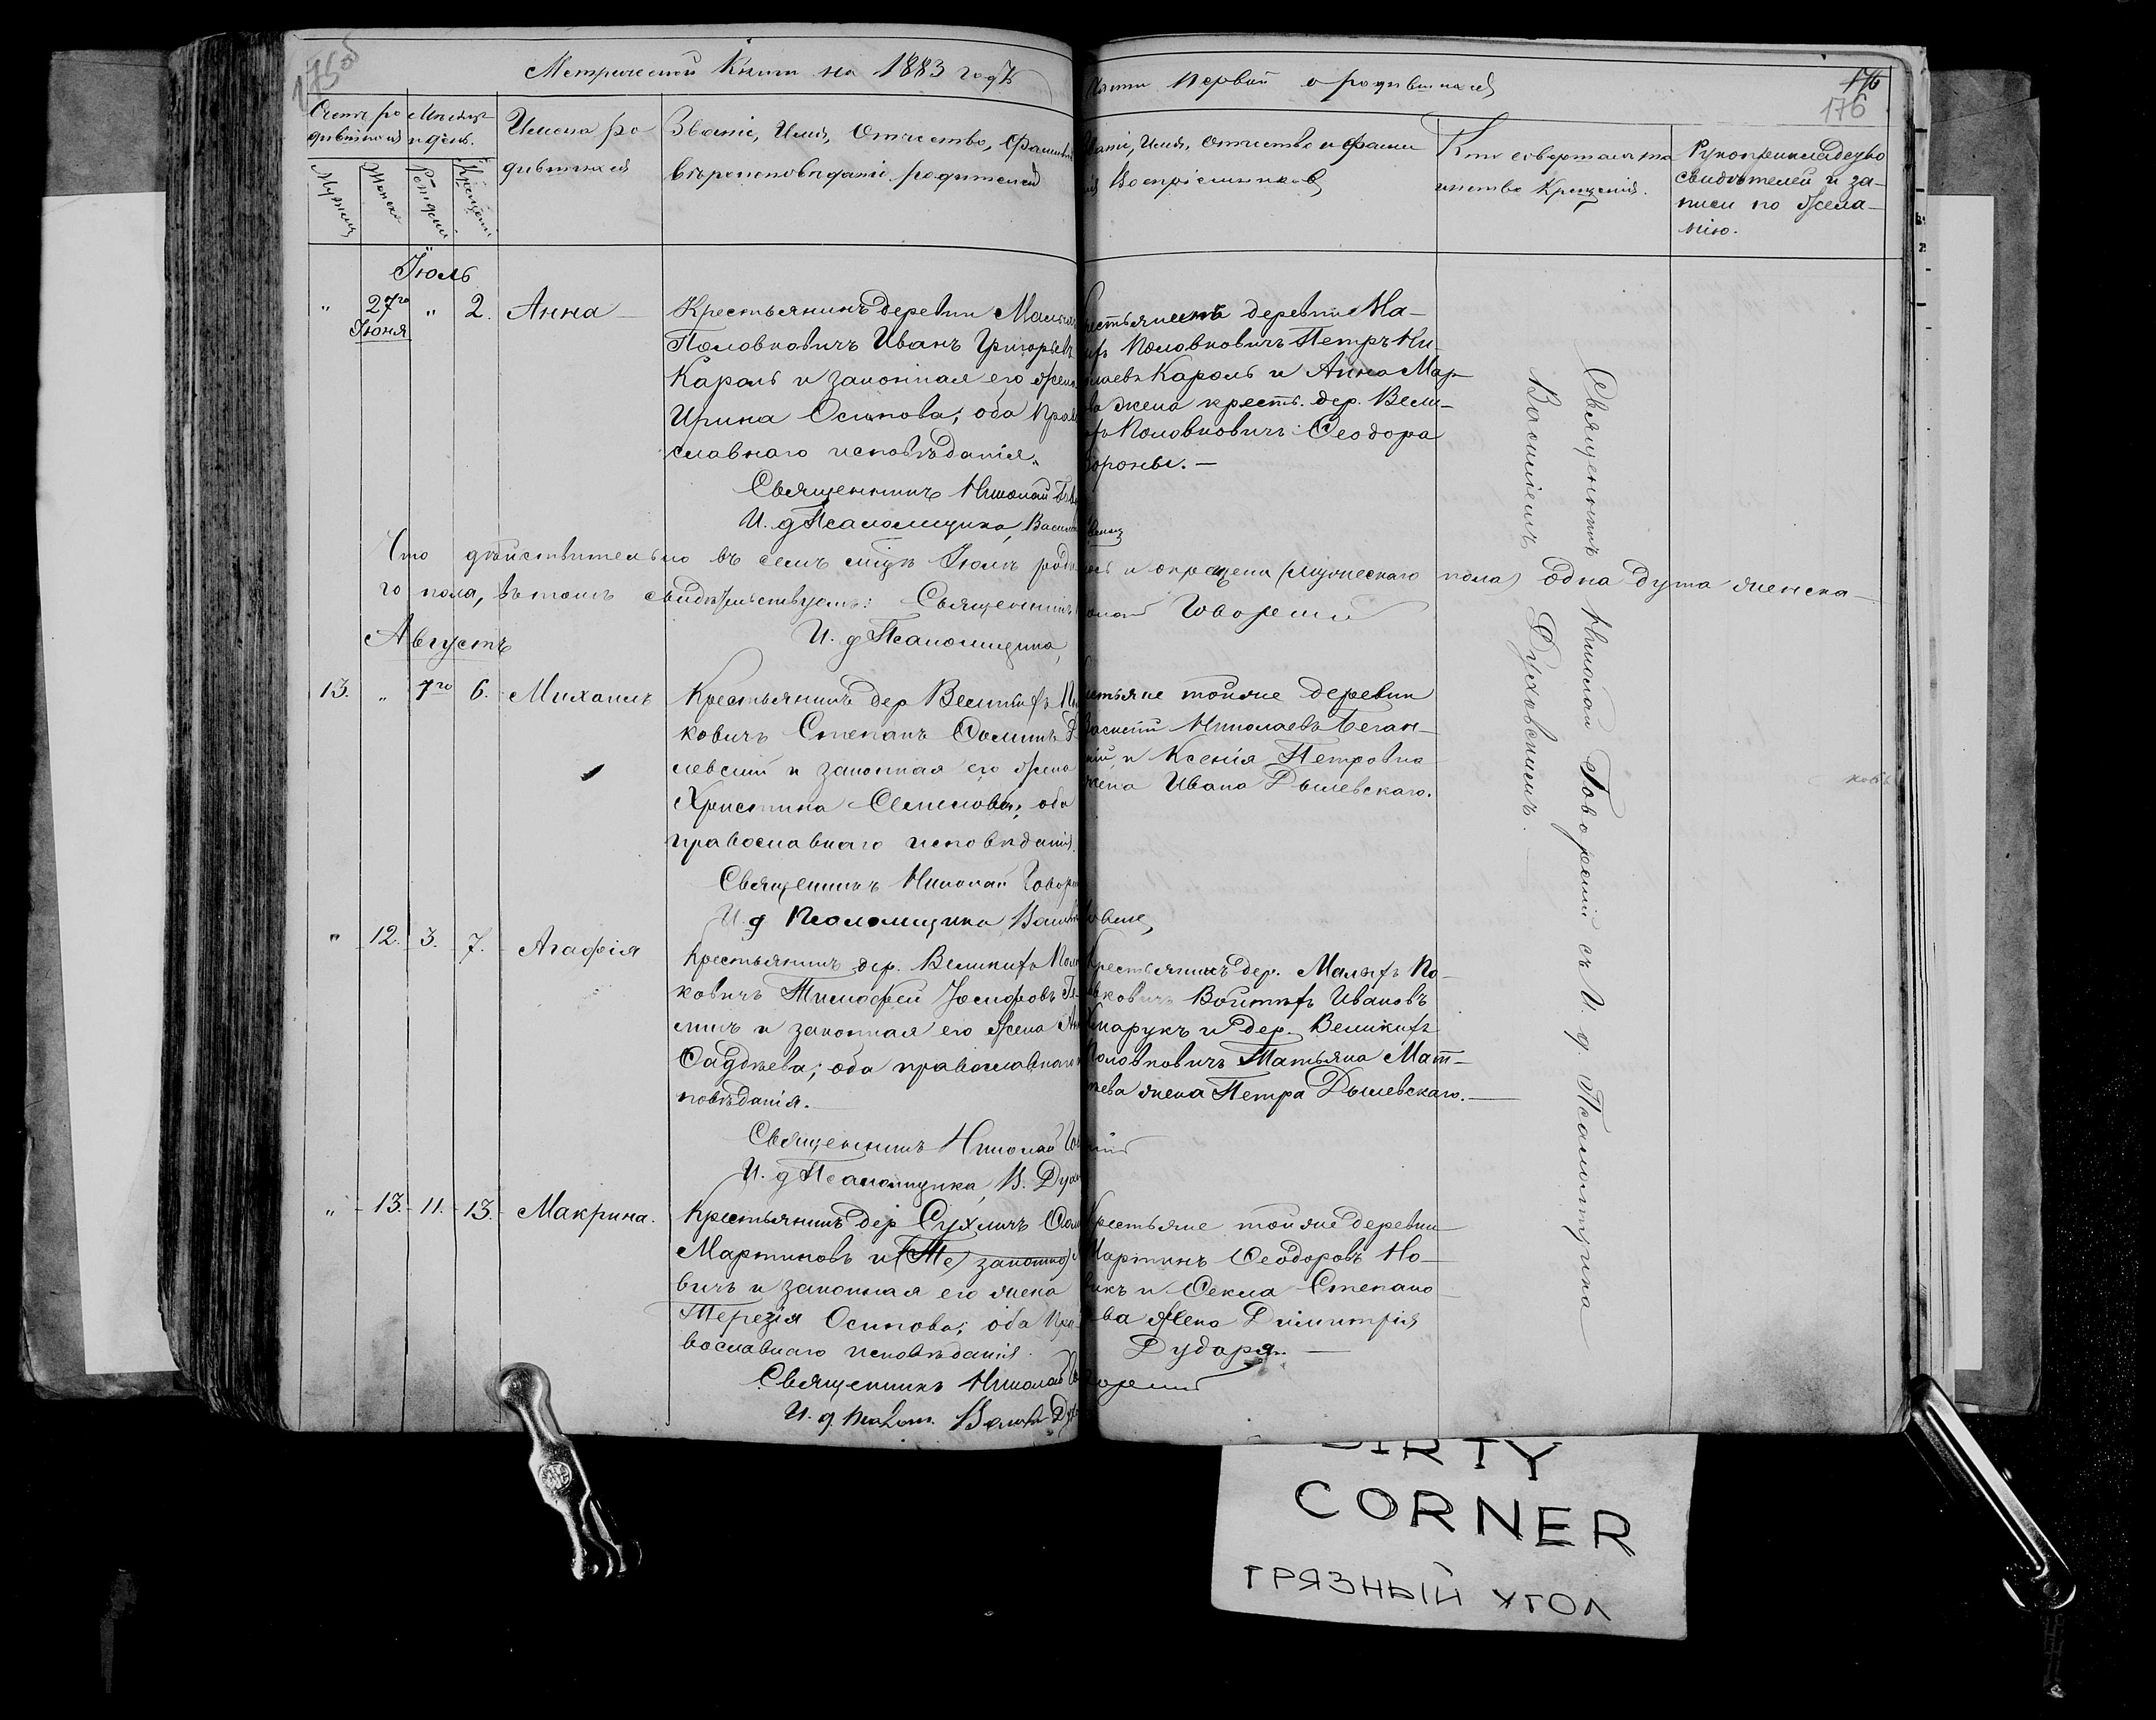 175об
Метрической Книги на 1883 годъ
Части первой о родившихся
176
176
Счетъ ро Мѣсяцъ
дившихся и день.
Мужска
Женска
Рожденія
Крещенія
Имена ро
дившихся
Званіе, Имя, Отчество, Фамилія
вѣроисповѣданіе родителей
Званіе, Имя, Отчество и фами
лія Воспріемниковъ
Кто совершалъ та
инство Крещенія.
Рукоприкладство
свидѣтелей и за-
писи по жела-
нію.
Іюль
" 27го " 2. Анна
Іюня
Крестьянинъ деревни Малыхъ
Половковичъ Иванъ Григорьевъ
Кароль и законная его жена
Ирина Осипова; оба Право
славнаго исповѣданія.
Священникъ Николай
И. д Псаломщика, Василій
Крестьянинъ деревни Ма-
лыхъ Половковичъ Петръ Ни-
колаевъ Кароль и Анна Мар-
ва жена крест. дер. Вели-
кихъ Половковичъ Ѳеодора
Вороны. —
Что дѣйствительно въ семъ мѣсяцѣ Іюлѣ родилась и окрещена (мужескаго пола) одна душа женска-
го пола, въ томъ свидѣтельствуемъ: Священникъ Николай Говорскій
И. д Псаломщика,
Августъ
13. " 7го 6. Михаилъ
Крестьянинъ дер Великихъ По
ковичъ Степанъ Ѳоминъ Д
левскій и законная его жена
Христина Семенова; оба
православнаго исповѣданія.
Священникъ Николай Говор
И. д Псаломщика Василій
Крестьяне тойже деревни
Василій Николаевъ Беган-
скій и Ксенія Петровна
жена Ивана Дылевскаго.
" 12. 3. 7. Агафія
Крестьянинъ дер. Великихъ Полов
ковичъ Тимофей Іосифовъ
и законная его жена
Ѳаддѣева; оба православнаго ис
повѣданія. —
Священникъ Николай Го
И. д Псаломщика, В. Духов
Крестьянинъ дер. Малыхъ По-
ловковичъ Войтехъ Ивановъ
и дер. Великихъ
Половковичъ Татьяна Мат-
вѣева жена Петра Дылевскаго. —
" 13. 11. 13. Макрина.
Крестьянинъ дер Сухмичъ Ѳом
Мартиновъ и (Те) законно)
вичъ и законная его жена
Терезія Осипова; оба Пра
вославнаго исповѣданія.
Священникъ Николай Говорскій
И. д. Псалом. Василій Дух
Крестьяне тойже деревни
Мартинъ Ѳеодоровъ Но-
викъ и Ѳекла Степано
ва жена Димитрія
Дударя. —
Священникъ Николай Говорскій съ И. д. Псаломщика
Василіемъ Духовскимъ.
DIRTY
CORNER
ГРЯЗНЫЙ УГОЛ